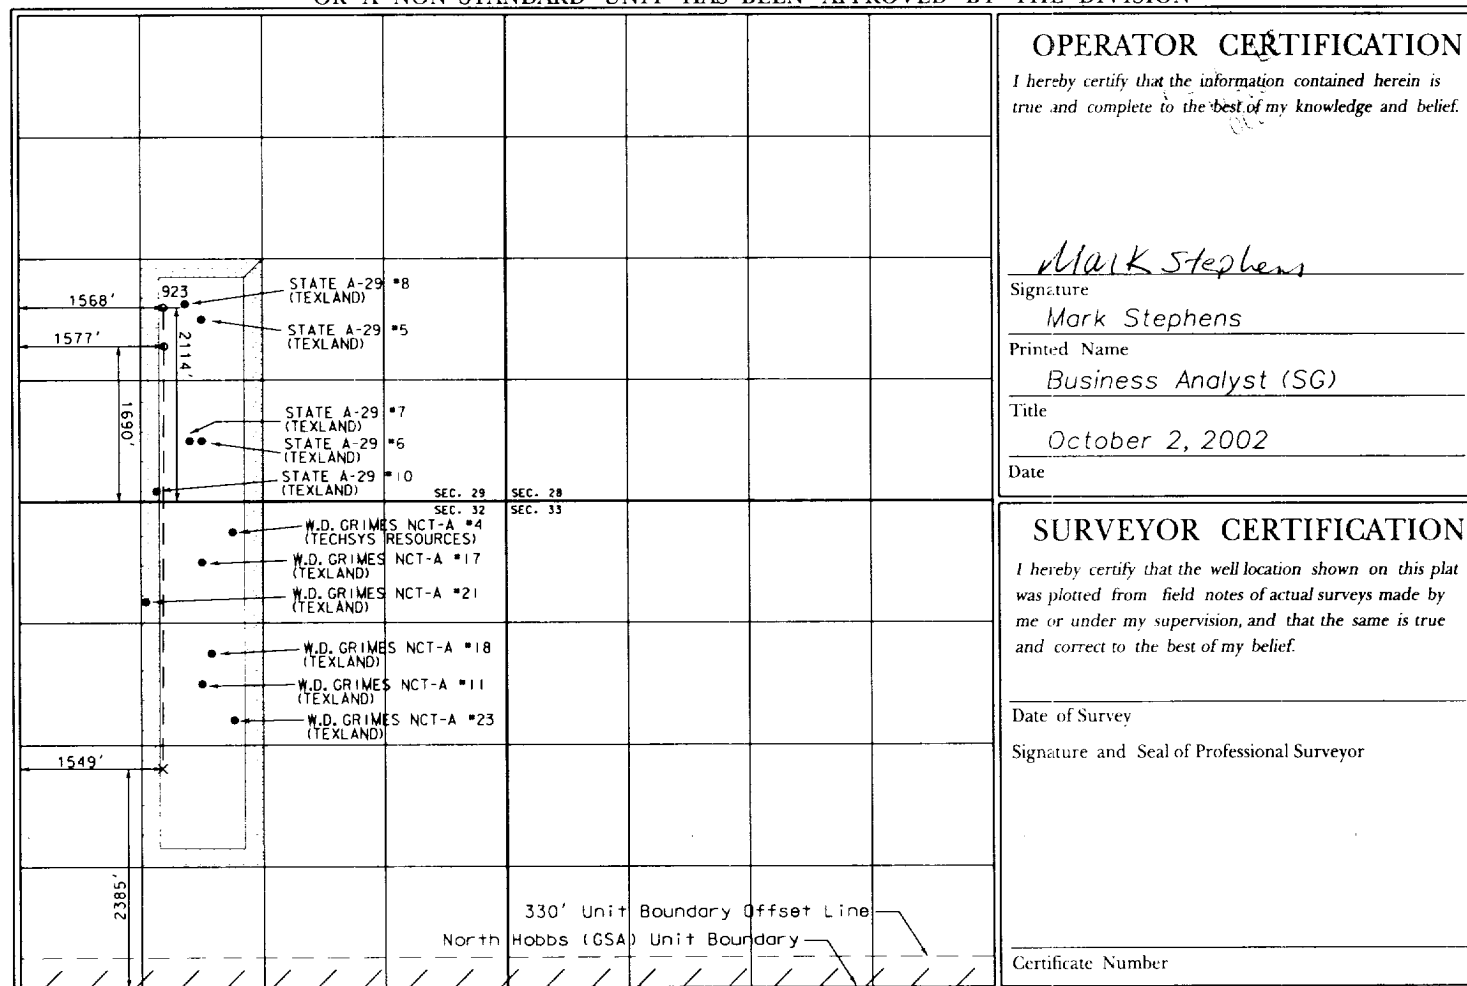 OR A NON-STANDARD UNIT HAS BEEN APPROVED BY THE DIVISION
1568'
923
STATE A-29 #8
(TEXLAND)
1577'
2114'
STATE A-29 #5
(TEXLAND)
1690'
STATE A-29 #7
(TEXLAND)
STATE A-29 #6
(TEXLAND)
STATE A-29 #10
(TEXLAND)
SEC. 29 SEC. 28
SEC. 32 SEC. 33
W.D. GRIMES NCT-A #4
(TECHSYS RESOURCES)
W.D. GRIMES NCT-A #17
(TEXLAND)
W.D. GRIMES NCT-A #21
(TEXLAND)
W.D. GRIMES NCT-A #18
(TEXLAND)
W.D. GRIMES NCT-A #11
(TEXLAND)
W.D. GRIMES NCT-A #23
(TEXLAND)
1549'
2385'
330' Unit Boundary Offset Line
North Hobbs (GSA) Unit Boundary
OPERATOR CERTIFICATION
I hereby certify that the information contained herein is
true and complete to the best of my knowledge and belief.
Mark Stephens
Signature
Mark Stephens
Printed Name
Business Analyst (SG)
Title
October 2, 2002
Date
SURVEYOR CERTIFICATION
I hereby certify that the well location shown on this plat
was plotted from field notes of actual surveys made by
me or under my supervision, and that the same is true
and correct to the best of my belief.
Date of Survey
Signature and Seal of Professional Surveyor
Certificate Number